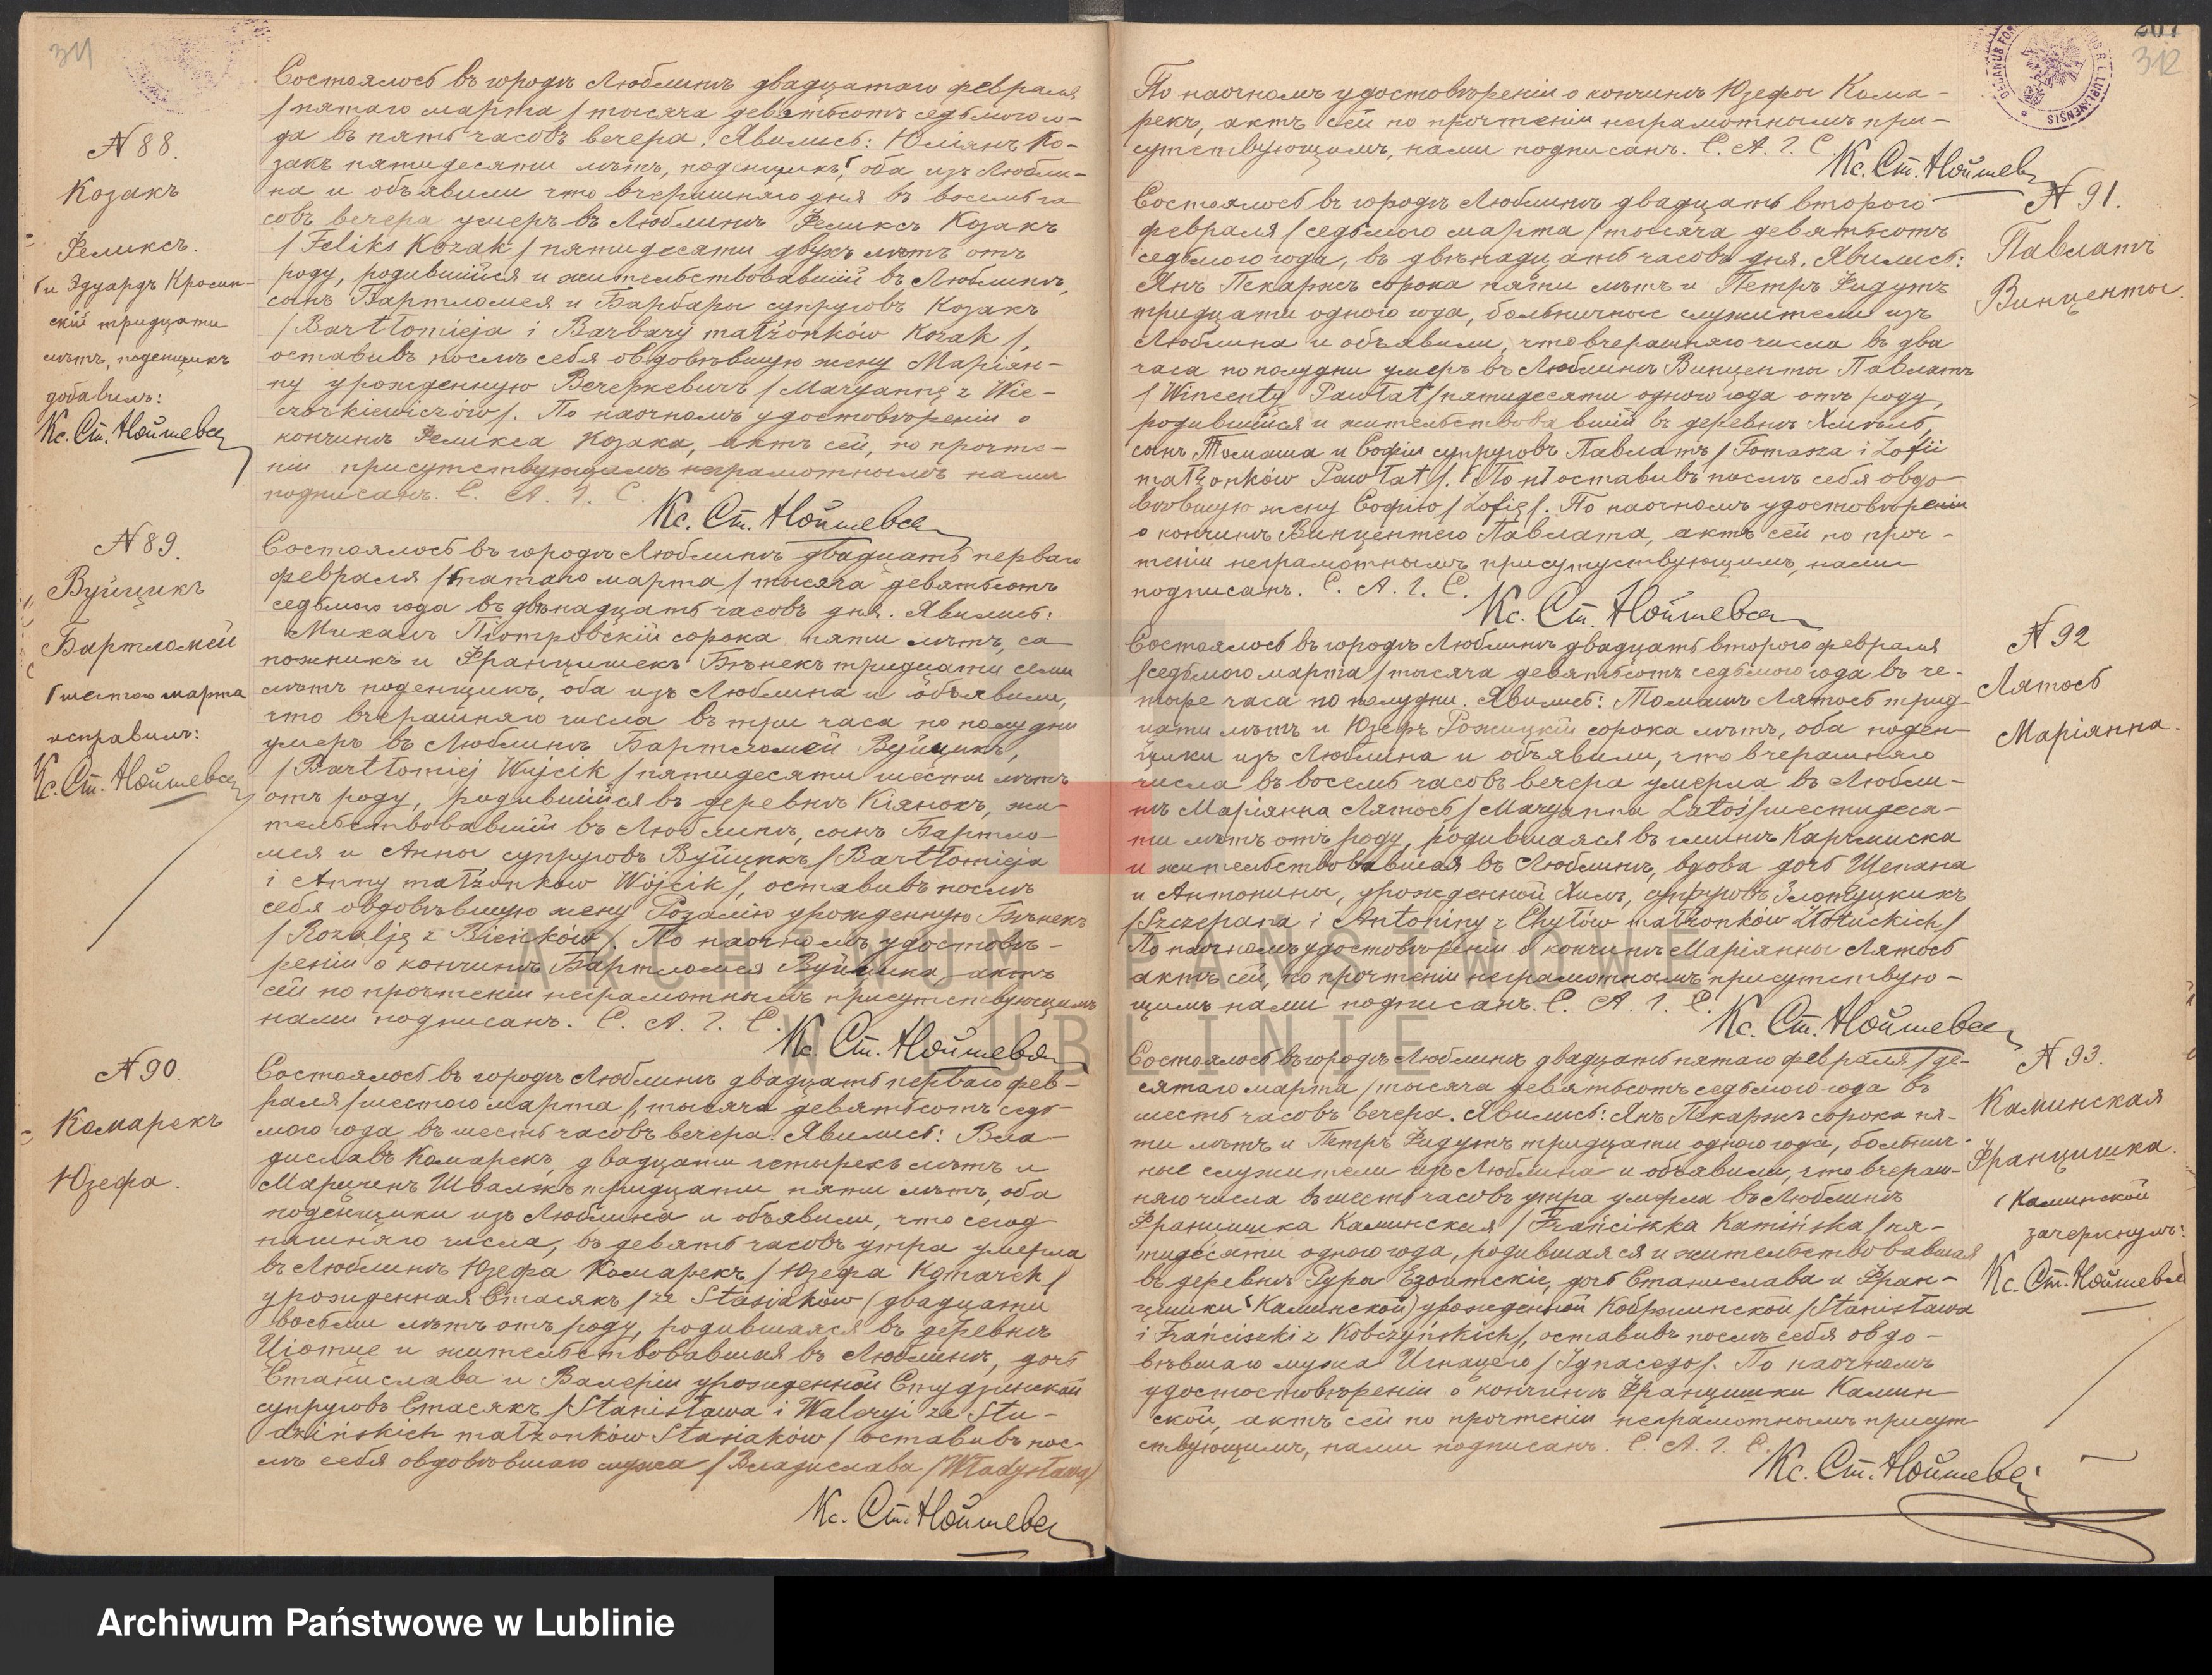 311
№ 88.
Козакъ
Феликсъ.
и Эдуардъ Кросин-
скій тридцати
лѣтъ, поденщикъ
добавилъ:
Кс. Ст. Нойшевск
Состоялось въ городѣ Люблинѣ двадцатаго февраля
/пятаго марта/ тысяча девятьсотъ седьмого го-
да въ пять часовъ вечера. Явились: Юліянъ Ко-
закъ пятидесяти лѣтъ, поденщикъ, оба изъ Любли-
на и объявили что вчерашняго дня въ восемь ча
совъ вечера умеръ въ Люблинѣ Феликсъ Козакъ
/Feliks Kozak/ пятидесяти двухъ лѣтъ отъ
роду, родившійся и жительствовавшій въ Люблинѣ,
сынъ Бартломея и Барбары супруговъ Козакъ
/Bartłomieja i Barbary małżonków Kozak/,
оставивъ послѣ себя овдовѣвшую жену Маріян-
ну урожденную Вечеркевичъ /Maryannę z Wie-
czorkiewiczów/. По наочномъ удостовѣреніи о
кончинѣ Феликса Козака, актъ сей, по прочте-
ніи присутствующимъ неграмотнымъ нами
подписанъ. С. А. Г. С.
Кс. Ст. Нойшевск
№ 89.
Вуйцикъ
Бартломей
шестого марта
исправилъ:
Кс. Ст. Нойшевск
Состоялось въ городѣ Люблинѣ двадцать перваго
февраля /пятаго марта/ тысяча девятьсотъ
седьмого года въ двѣнадцать часовъ дня. Явились:
Михаилъ Піотровскій сорока пяти лѣтъ, са-
пожникъ и Францишекъ Бѣнекъ тридцати семи
лѣтъ поденщикъ, оба изъ Люблина и объявили,
что вчерашняго числа въ три часа по полудни
умеръ въ Люблинѣ Бартломей Вуйцикъ,
/Bartłomiej Wójcik/ пятидесяти шести лѣтъ
отъ роду, родившійся въ деревнѣ Кіянокъ, жи-
тельствовавшій въ Люблинѣ, сынъ Бартло-
мея и Анны супруговъ Вуйцикъ /Bartłomieja
i Anny małżonków Wójcik/, оставивъ послѣ
себя овдовѣвшую жену Розалію урожденную Бѣнекъ
/Rozalję z Bieńków/. По наочномъ удостовѣ-
реніи о кончинѣ Бартломея Вуйцика актъ
сей по прочтеніи неграмотнымъ присутствующимъ
нами подписанъ. С. А. Г. С.
Кс. Ст. Нойшевск
№ 90.
Комарекъ
Юзефа.
Состоялось въ городѣ Люблинѣ двадцать перваго фев-
раля /шестого марта/ тысяча девятьсотъ седь-
мого года въ шесть часовъ вечера. Явились: Вла-
диславъ Комарекъ, двадцати четырехъ лѣтъ и
Марцинъ тридцати пяти лѣтъ, оба
поденщики изъ Люблина и объявили, что сегод
няшняго числа, въ девять часовъ утра умерла
въ Люблинѣ Юзефа Комарекъ /Юзефа Komarek/
урожденная Стасякъ /ze Stasiaków/ двадцати
восьми лѣтъ отъ роду, родившаяся въ деревнѣ
и жительствовавшая въ Люблинѣ, дочь
Станислава и Валеріи урожденной Студзинской
супруговъ Стасякъ /Stanisława i Waleryi ze Stu-
dzińskich małżonków Stasiaków/ оставивъ пос-
лѣ себя овдовѣвшаго мужа /Владислава /Władysława/
Кс. Ст. Нойшевск
207
312
По наочномъ удостовѣреніи о кончинѣ Юзефы Кома-
рекъ, актъ сей по прочтеніи неграмотнымъ при-
сутствующимъ, нами подписанъ. С. А. Г. С
Кс. Ст. Нойшевск
№ 91.
Павлатъ
Винценты.
Состоялось въ городѣ Люблинѣ двадцать второго
февраля /седьмого марта/ тысяча девятьсотъ
седьмого года, въ двѣнадцать часовъ дня. Явились:
Янъ Пекаржъ сорока пяти лѣтъ и Петръ Фидутъ
тридцати одного года, больничные служители изъ
Люблина и объявили, что вчерашняго числа въ два
часа по полудни умеръ въ Люблинѣ Винценты Павлатъ
/Wincenty Pawłat/ пятидесяти одного года отъ роду,
родившійся и жительствовавшій въ деревнѣ Хмель,
сынъ Томаша и Софіи супруговъ Павлатъ /Tomasza i Zofii
małżonków Pawłat/. оставивъ послѣ себя овдо-
вѣвшую жену Софію /Zofię/. По наочномъ удостовѣреніи
о кончинѣ Винцентего Павлата, актъ сей по проч-
теніи неграмотнымъ присутствующимъ, нами
подписанъ. С. А. Г. С.
Кс. Ст. Нойшевск
№ 92
Лятось
Маріянна.
Состоялось въ городѣ Люблинѣ двадцать второго февраля
/седьмого марта/ тысяча девятьсотъ седьмого года въ че-
тыре часа по полудни. Явились: Томашъ Лятось трид
цати лѣтъ и Юзефъ Рожицкій сорока лѣтъ, оба поден-
щики изъ Люблина и объявили, что вчерашняго
числа въ восемь часовъ вечера умерла въ Любли-
нѣ Маріянна Лятось /Maryanna Latoś/ шестидеся-
ти лѣтъ отъ роду, родившаяся въ гминѣ Карчмиска
и жительствовавшая въ Люблинѣ, вдова дочь Щепана
и Антонины, урожденной Хилъ, супруговъ Злотуцкихъ
/Szczepana i Antoniny z Chyłów małżonków Złotuckich/
По наочномъ удостовѣреніи о кончинѣ Маріянны Лятось
актъ сей, по прочтеніи неграмотнымъ присутствую-
щимъ нами подписанъ. С. А. Г. С.
Кс. Ст. Нойшевск
№ 93.
Каминская
Францишка.
Каминской
зачеркнулъ:
Кс. Ст. Нойшевск
Состоялось въ городѣ Люблинѣ двадцать пятаго февраля /де-
сятаго марта/ тысяча девятьсотъ седьмого года въ
шесть часовъ вечера. Явились: Янъ Пекаржъ сорока пя-
ти лѣтъ и Петръ Фидутъ тридцати одного года, больнич-
ные служители изъ Люблина и объявили, что вчераш-
няго числа въ шесть часовъ утра умерла въ Люблинѣ
Францишка Каминская /Franciszka Kamińska/ пя-
тидесяти одного года, родившаяся и жительствовавшая
въ деревнѣ Руры Езоитскіе, дочь Станислава и Фран-
цишки (Каминской) урожденной Кобржинской /Stanisława
i Franciszki z Kobrzyńskich/, оставивъ послѣ себя овдо-
вѣвшаго мужа Игнацего /Ignacego/. По наочномъ
удостостовѣреніи о кончинѣ Францишки Камин-
ской, актъ сей по прочтеніи неграмотнымъ присут
ствующимъ, нами подписанъ. С. А. Г. С.
Кс. Ст. Нойшевск
ARCHIWUM PAŃSTWOWE
W LUBLINIE
Archiwum Państwowe w Lublinie